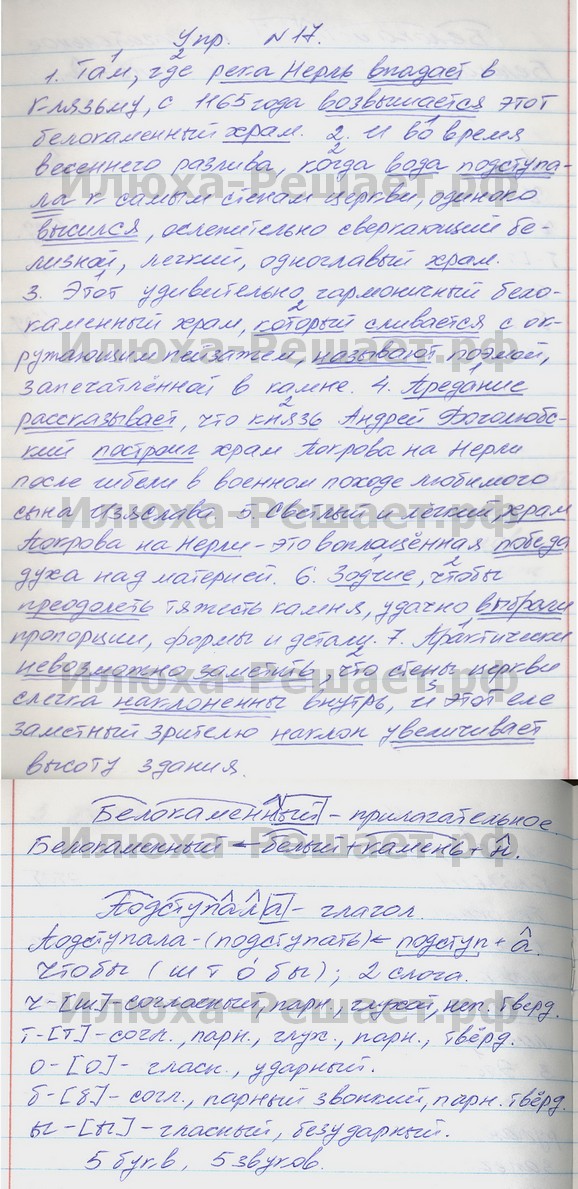 Упр. №17.
1. Там, где река Нерль впадает в
Клязьму, с 1165 года возвышается этот
белокаменный храм. 2. И во время
весеннего разлива, когда вода подступа-
ла к самым стенам церкви, одиноко
высился, ослепительно сверкающий бе-
лизной, легкий, одноглавый храм.
3. Этот удивительно гармоничный бело-
каменный храм, который сливается с ок-
ружающим пейзажем, называют поэмой,
запечатлённой в камне. 4. Предание
рассказывает, что князь Андрей Боголюбс-
кий построил храм Покрова на Нерли
после гибели в военном походе любимого
сына Изяслава. 5. Светлый и лёгкий храм
Покрова на Нерли - это воплощённая победа
духа над материей. 6. Зодчие, чтобы
преодолеть тяжесть камня, удачно выбрали
пропорции, формы и детали. 7. Практически
невозможно заметить, что стены церкви
слегка наклонены внутрь, и этот еле
заметный зрителю наклон увеличивает
высоту здания.
Белокаменный - прилагательное
Белокаменный ← белый + камень + н.
Подступала - глагол.
Подступала - (подступать) ← подступ + а.
Чтобы (штобы); 2 слога.
ч - [ш] - согласный, парн., глухой, неп. тверд.
т - [т] - согл., парн., глух., парн., твёрд.
о - [о] - гласн., ударный.
б - [б] - согл., парный звонкий, парн. твёрд.
ы - [ы] - гласный, безударный.
5 букв, 5 звуков.
Илюха-Решает.рф
Илюха-Решает.рф
Илюха-Решает.рф
Илюха-Решает.рф
Илюха-Решает.рф
Илюха-Решает.рф